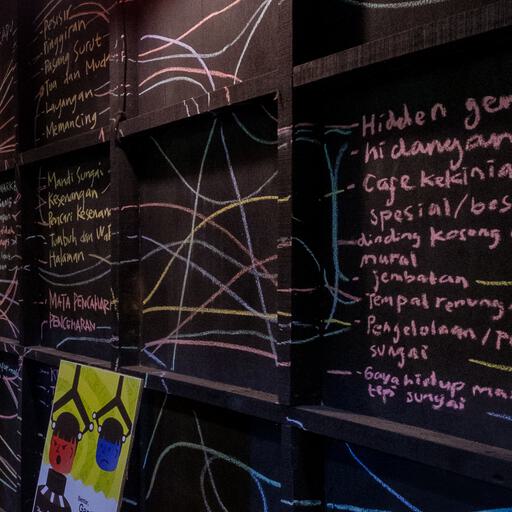 - Pesisir
- Pinggiran
- Pasang Surut
- Tua dan Muda
- Layangan
- Memancing
- Mandi Sungai
- Kesenangan
- Pencari
- Tumbuh dan
Halaman
- MATA PENCAHARI
- PENCEMARAN
- Hidden gem
- hidangan
- Cafe kekinia
spesial/bes
- dinding kosong
mural
jembatan
- Tempat renung
- Pengelolaan/P
sungai
- Gaya hidup ma
tepi sungai